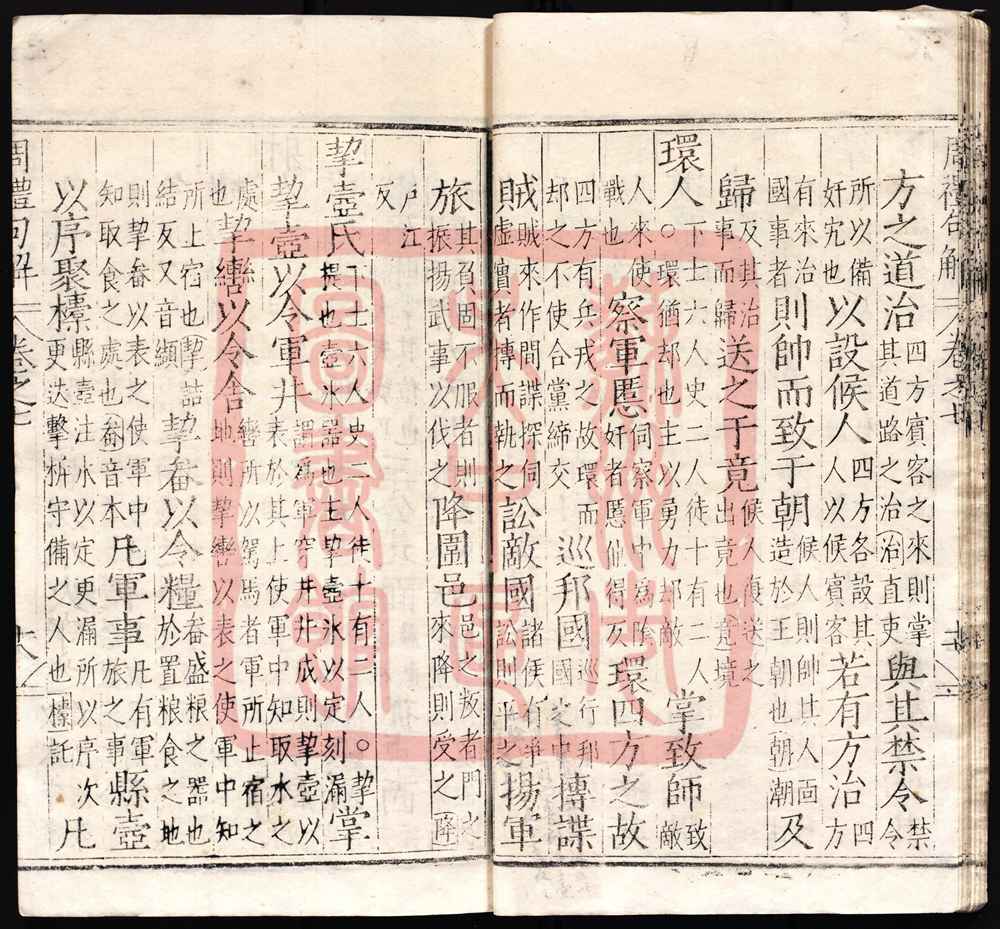 周禮句解 卷之七
方之道治四方賓客之來則掌其道路之治治直吏與其禁令禁令
所以備奸宄也以設候人四方各設其人以候賓客若有方治四方
有來治事者則帥而致于朝候人則帥其人面造於王朝也朝潮及
歸及其治事而歸送之于竟候人復送之出竟也竟境
環人下士六人史二人徒十有二人。環猶却也主以勇力却敵掌致師致敵
人來使戰也察軍慝伺察軍中為陰奸者慝他得反環四方之故
四方有兵戎之故環而却之不使合黨締交巡邦國巡行邦國之中搏諜
賊賊來作間諜探伺虛實者搏而執之訟敵國諸侯有爭訟則平之揚軍
旅其負固不服者則振揚武事以伐之降圍邑邑之叛者門之來降則受之降
户江反
挈壺氏下士六人史二人徒十有二人。挈提也壺氷器也主挈壺氷以定刻漏掌
挈壺以令軍井謂為軍穿井井成則挈壺以表於其上使軍中知取水之
處也挈轡以令舍轡所以駕馬者軍所止宿之地則挈轡以表之使軍中知
所上宿也挈詰結反又音纈挈畚以令糧畚盛粮之器也於置粮食之地
則挈畚以表之使軍中知取食之處也畚音本凡軍事凡有軍旅之事縣壺
以序聚㯓縣壺注水以定更漏所以序次更迭擊柝守備之人也㯓託凡
周禮句解 卷之七 十八